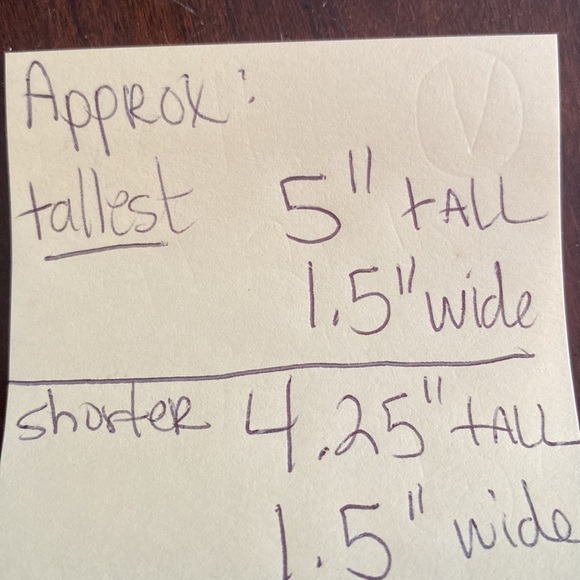 Approx:
tallest 5" tALL
1.5" wide
shorter 4.25" tALL
1.5" wide